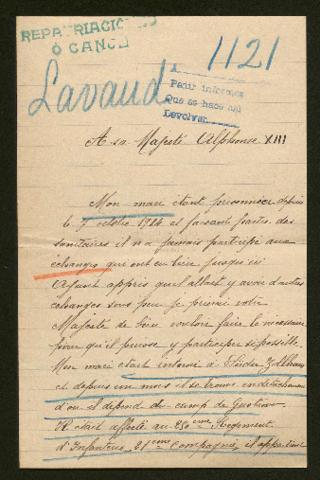 REPATRIACIO
Ó CANJE
1121
Lavaud
A
Pedir informes
Que se hace así
Devolver
A sa Majesté Alphonse XIII
Mon mari étant prisonnier depuis
le 7 octobre 1914 et faisant partie des
sanitaires il n'a jamais participé aux
échanges qui ont eu lieu jusqu'ici
Ayant appris qu'il allait y avoir d'autres
échanges sous peu je prierai votre
Majesté de bien vouloir faire le nécessaire
pour qu'il puisse y participer si possible.
Mon mari était interné à
et depuis un mois il se trouve en détachement
d'où il dépend du camp de Gustrow
Il était affecté au 250ème Régiment
d'Infanterie, 21ème Compagnie, il appartient